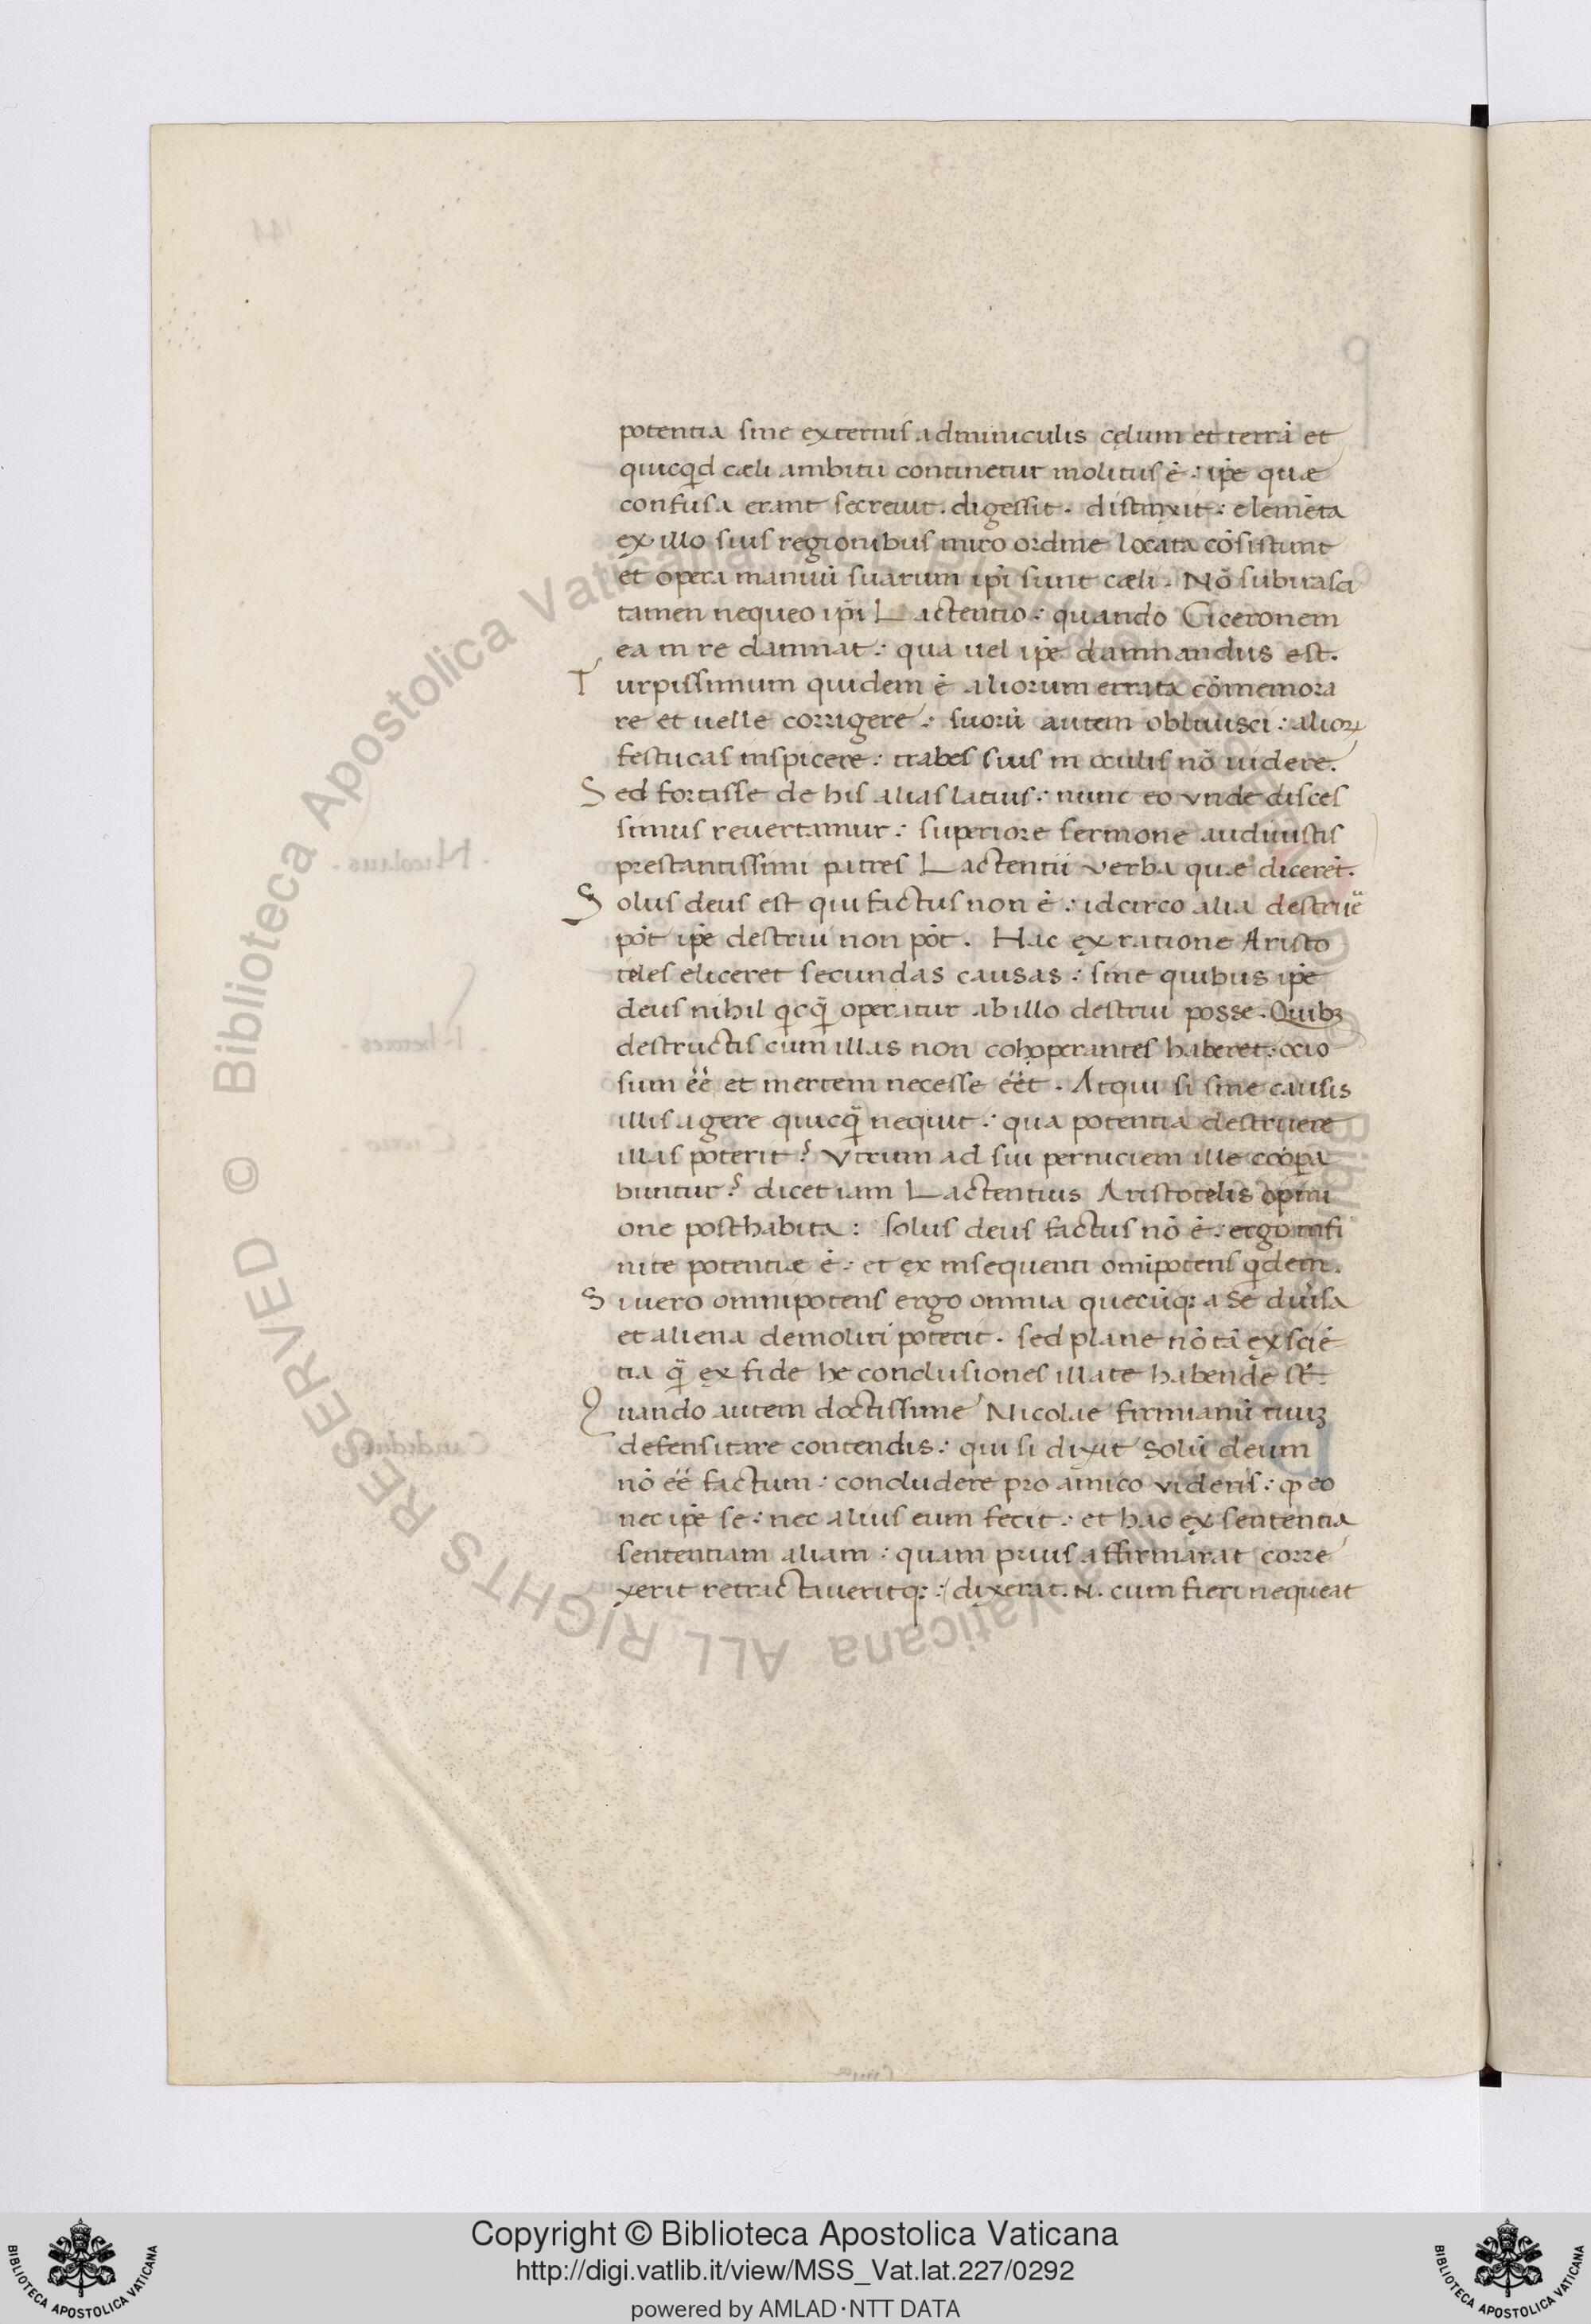 potentia sine externis adminiculis cęlum et terrā et
quicq̇d cæli ambitu continetur molitus ē : ip̄e quæ
confusa erant secreuit . digessit . distinxit : elemēta
ex illo suis regionibus miro ordine locata cōsistunt
et opera manuū suarum ip̄i sunt cæli . Nō subirasci
tamen nequeo ip̄i Lactentio : quando Ciceronem
ea in re damnat : qua uel ip̄e damnandus est .
Turpissimum quidem ē aliorum errata cōmemora
re et uelle corrigere : suorū autem obliuisci : alioꝝ
festucas inspicere : trabes suis in oculis nō uidere .
Sed fortasse de his alias latius : nunc eo vnde disces
simus revertamur : superiore sermone audiuistis
prestantissimi patres Lactentii verba quæ dicerēt .
Solus deus est qui factus non ē : idcirco alia destruē
pōt ip̄e destrui non pōt . Hac ex ratione Aristo
teles eliceret secundas causas : sine quibus ip̄e
deus nihil qicq̄ operatur ab illo destrui posse . Quibꝫ
destructis cum illas non cohoperantes haberet : ocio
sum ēē et inertem necesse ēēt . Atqui si sine causis
illis agere quicq̄ nequit : qua potentia destruere
illas poterit ? Vtrum ad sui perniciem ille coopera
buntur ? dicet iam Lactentius Aristotelis opini
one posthabita : solus deus factus nō ē : ergo infi
nite potentiæ ē : et ex insequenti omīpotens q̇dem .
Si uero omnipotens ergo omnia quecūq; a se diuisa
et aliena demoliri poterit . sed plane nō tā ex sciē
tia q̄ ex fide he conclusiones illate habende st̄ .
Quando autem doctissime Nicolae firmianū tuuꝫ
defensitare contendis : qui si dixit solū deum
nō ēē factum : concludere pro amico videris : ꝙ eo
nec ip̄e se : nec alius eum fecit : et hac ex sententia
sententiam aliam : quam prius affirmarat corre
xerit retractaueritq; : dixerat . N . cum fieri nequeat
Copyright © Biblioteca Apostolica Vaticana
http://digi.vatlib.it/view/MSS_Vat.lat.227/0292
powered by AMLAD·NTT DATA
© Biblioteca Apostolica Vaticana ALL RIGHTS RESERVED
BIBLIOTECA APOSTOLICA VATICANA
BIBLIOTECA APOSTOLICA VATICANA